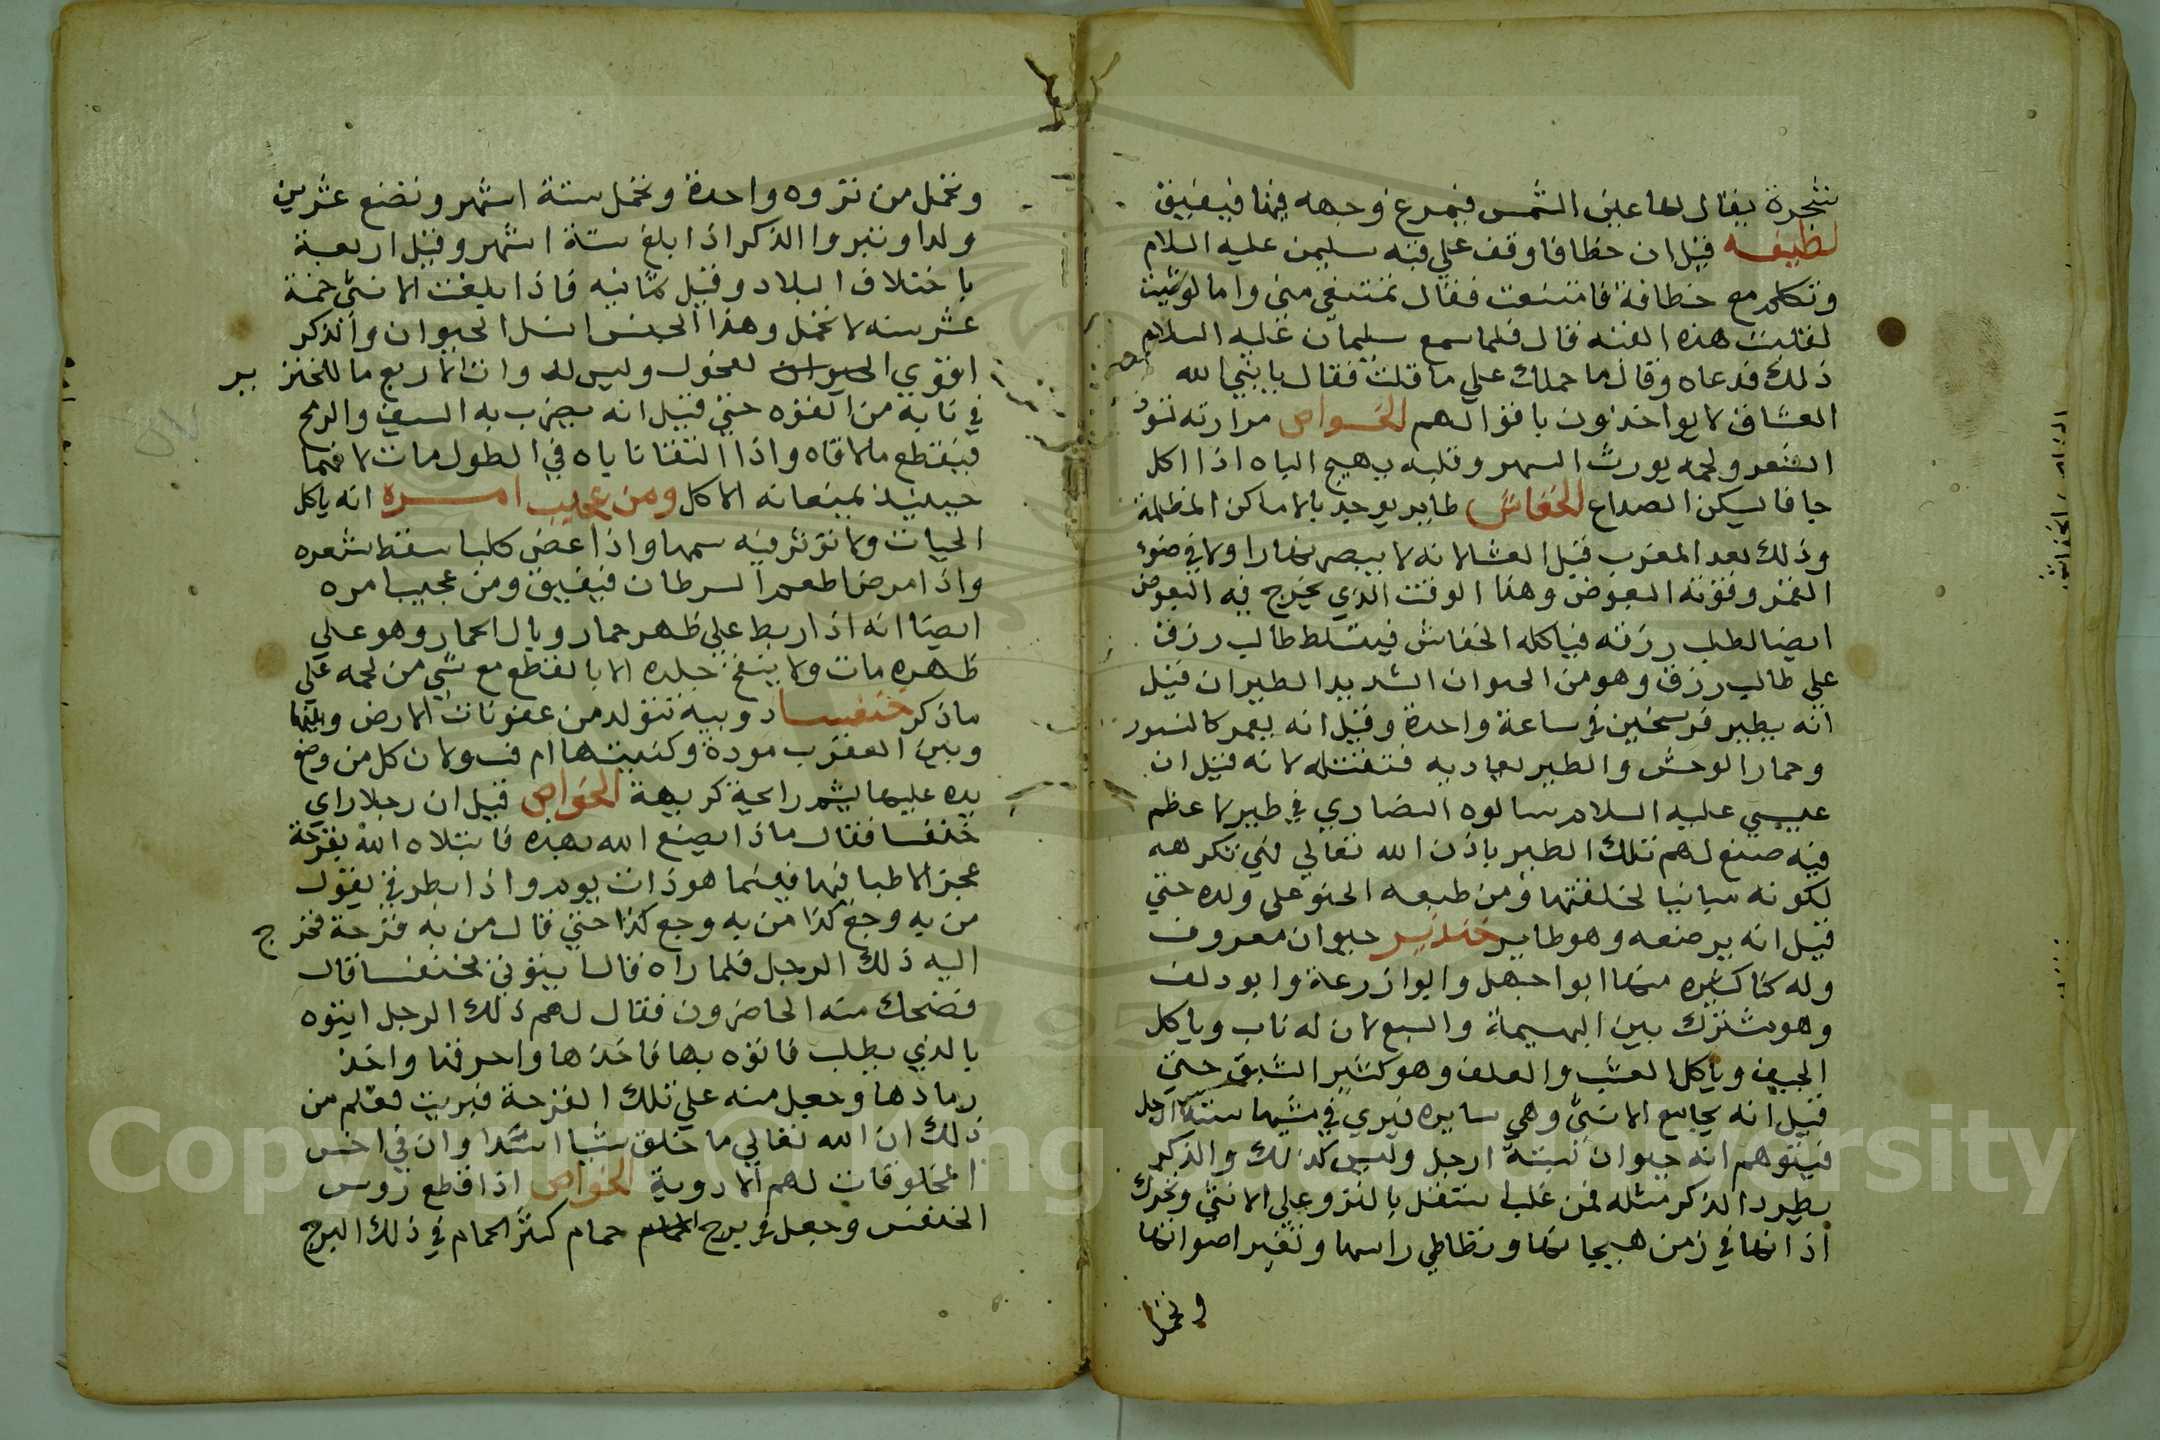 شجرة يقال لها عين الشمس فيمرغ وجهه فيها فيفيق
لطيفه قيل ان خطافا وقف علي قبه سليمن عليه السلام
وتكلم مع خطافة فامتنعت فقال تمتنعي مني وانا لو شيت
لقلبت هذه القبه قال فلما سمع سليمان عليه السلام
ذلك فدعاه وقال ما حملك علي ما قلت فقال يا نبي الله
العشاق لا يواخذون باقوالهم الخواص مرارته تسود
الشعر ولحمه يورث السهر وقلبه يهيج الباه اذا اكل
جافا يسكن الصداع الخفاش طاير يوجد بالاماكن المظلمة
وذلك بعد المغرب قبل العشا لانه لا يبصر نهارا ولا في ضوء
القمر وقوته البعوض وهذا الوقت الذي يخرج فيه البعوض
ايضا لطلب رزقه فياكله الخفاش فيتسلط طالب رزق
علي طالب رزق وهو من الحيوان الشديد الطيران قيل
انه يطير فرسخين في ساعة واحدة وقيل انه يعمر كالنسور
وحمار الوحش والطير تعاديه فتقتله لانه قيل ان
عيسي عليه السلام سالوه النصاري في طير لا عظم
فيه صنع لهم تلك الطير باذن الله تعالي فهي تكرهه
لكونه مباينا لخلقتها ومن طبعه الحنو على ولده حتي
قيل انه يرضعه وهو طاير خنزير حيوان معروف
وله كنا كثيره منها ابوا جهل وابوا زرعة وابو دلف
وهو مشترك بين البهيمة والسبع لان له ناب وياكل
الجيف وياكل العشب والعلف وهو كثير الشبق حتي
قيل انه يجامع الانثي وهي سايره فيري في مشيها ستة ارجل
فيتوهم انه حيوان بستة ارجل وليس كذلك والذكر
يطرد الذكر مثله فمن غلب استقل بالنزو علي الانثي وتحرك
اذانها في زمن هيجانها وتطاطي راسها وتغير اصواتها
وتحمل
وتحمل من نزوه واحدة وتحمل ستة اشهر وتضع عشرين
ولدا وينزوا الذكر اذا بلغ ستة اشهر وقيل اربعة
باختلاف البلاد وقيل ثمانيه فاذا بلغت الانثي خمسة
عشر سنه لا تحمل وهذا الجنس انسل الحيوان والذكر
اقوي الحيوان الفحول وليس لذوات الاربع ما للخنزير
في نابه من القوه حتي قيل انه يضرب به السيف والرمح
فيقطع ما لاقاه واذا التقا ناباه في الطول مات لانهما
حينيذ يمنعانه الاكل ومن عجيب امره انه ياكل
الحيات ولا تؤثر فيه سمها واذا عض كلبا سقط شعره
واذا مرض اطعم السرطان فيفيق ومن عجيب امره
ايضا انه اذا ربط علي ظهر حمار وبال الحمار وهو علي
ظهره مات ولا ينفخ جلده الا بالقطع مع شي من لحمه علي
ما ذكر خنفسا دويبه تتولد من عفونات الارض وبينها
وبين العقرب مودة وكنيتها ام فسو لان كل من وضع
يده عليها يشم رايحة كريهة الخواص قيل ان رجلا راي
خنفسا فقال ماذا يصنع الله بهذه فابتلاه الله بقرحة
عجز الاطبا فيها فبينما هو ذات يوم واذا بطرقي يقول
من به وجع كذا من به وجع كذا حتي قال من به قرحة فخرج
اليه ذلك الرجل فلما راه قال ايتوني بخنفسا قال
فضحك منه الحاضرون فقال لهم ذلك الرجل ايتوه
بالذي يطلب فاتوه بها فاخذها واحرقها واخذ
رمادها وجعل منه علي تلك القرحة فبريت فعلم من
ذلك ان الله تعالي ما خلق شيا سدا وان في اخس
المخلوقات لهم الادوية الخواص اذا قطع روس
الخنفس وجعل في برج حمام كثر الحمام في ذلك البرج
Copyright © King Saud University
1957